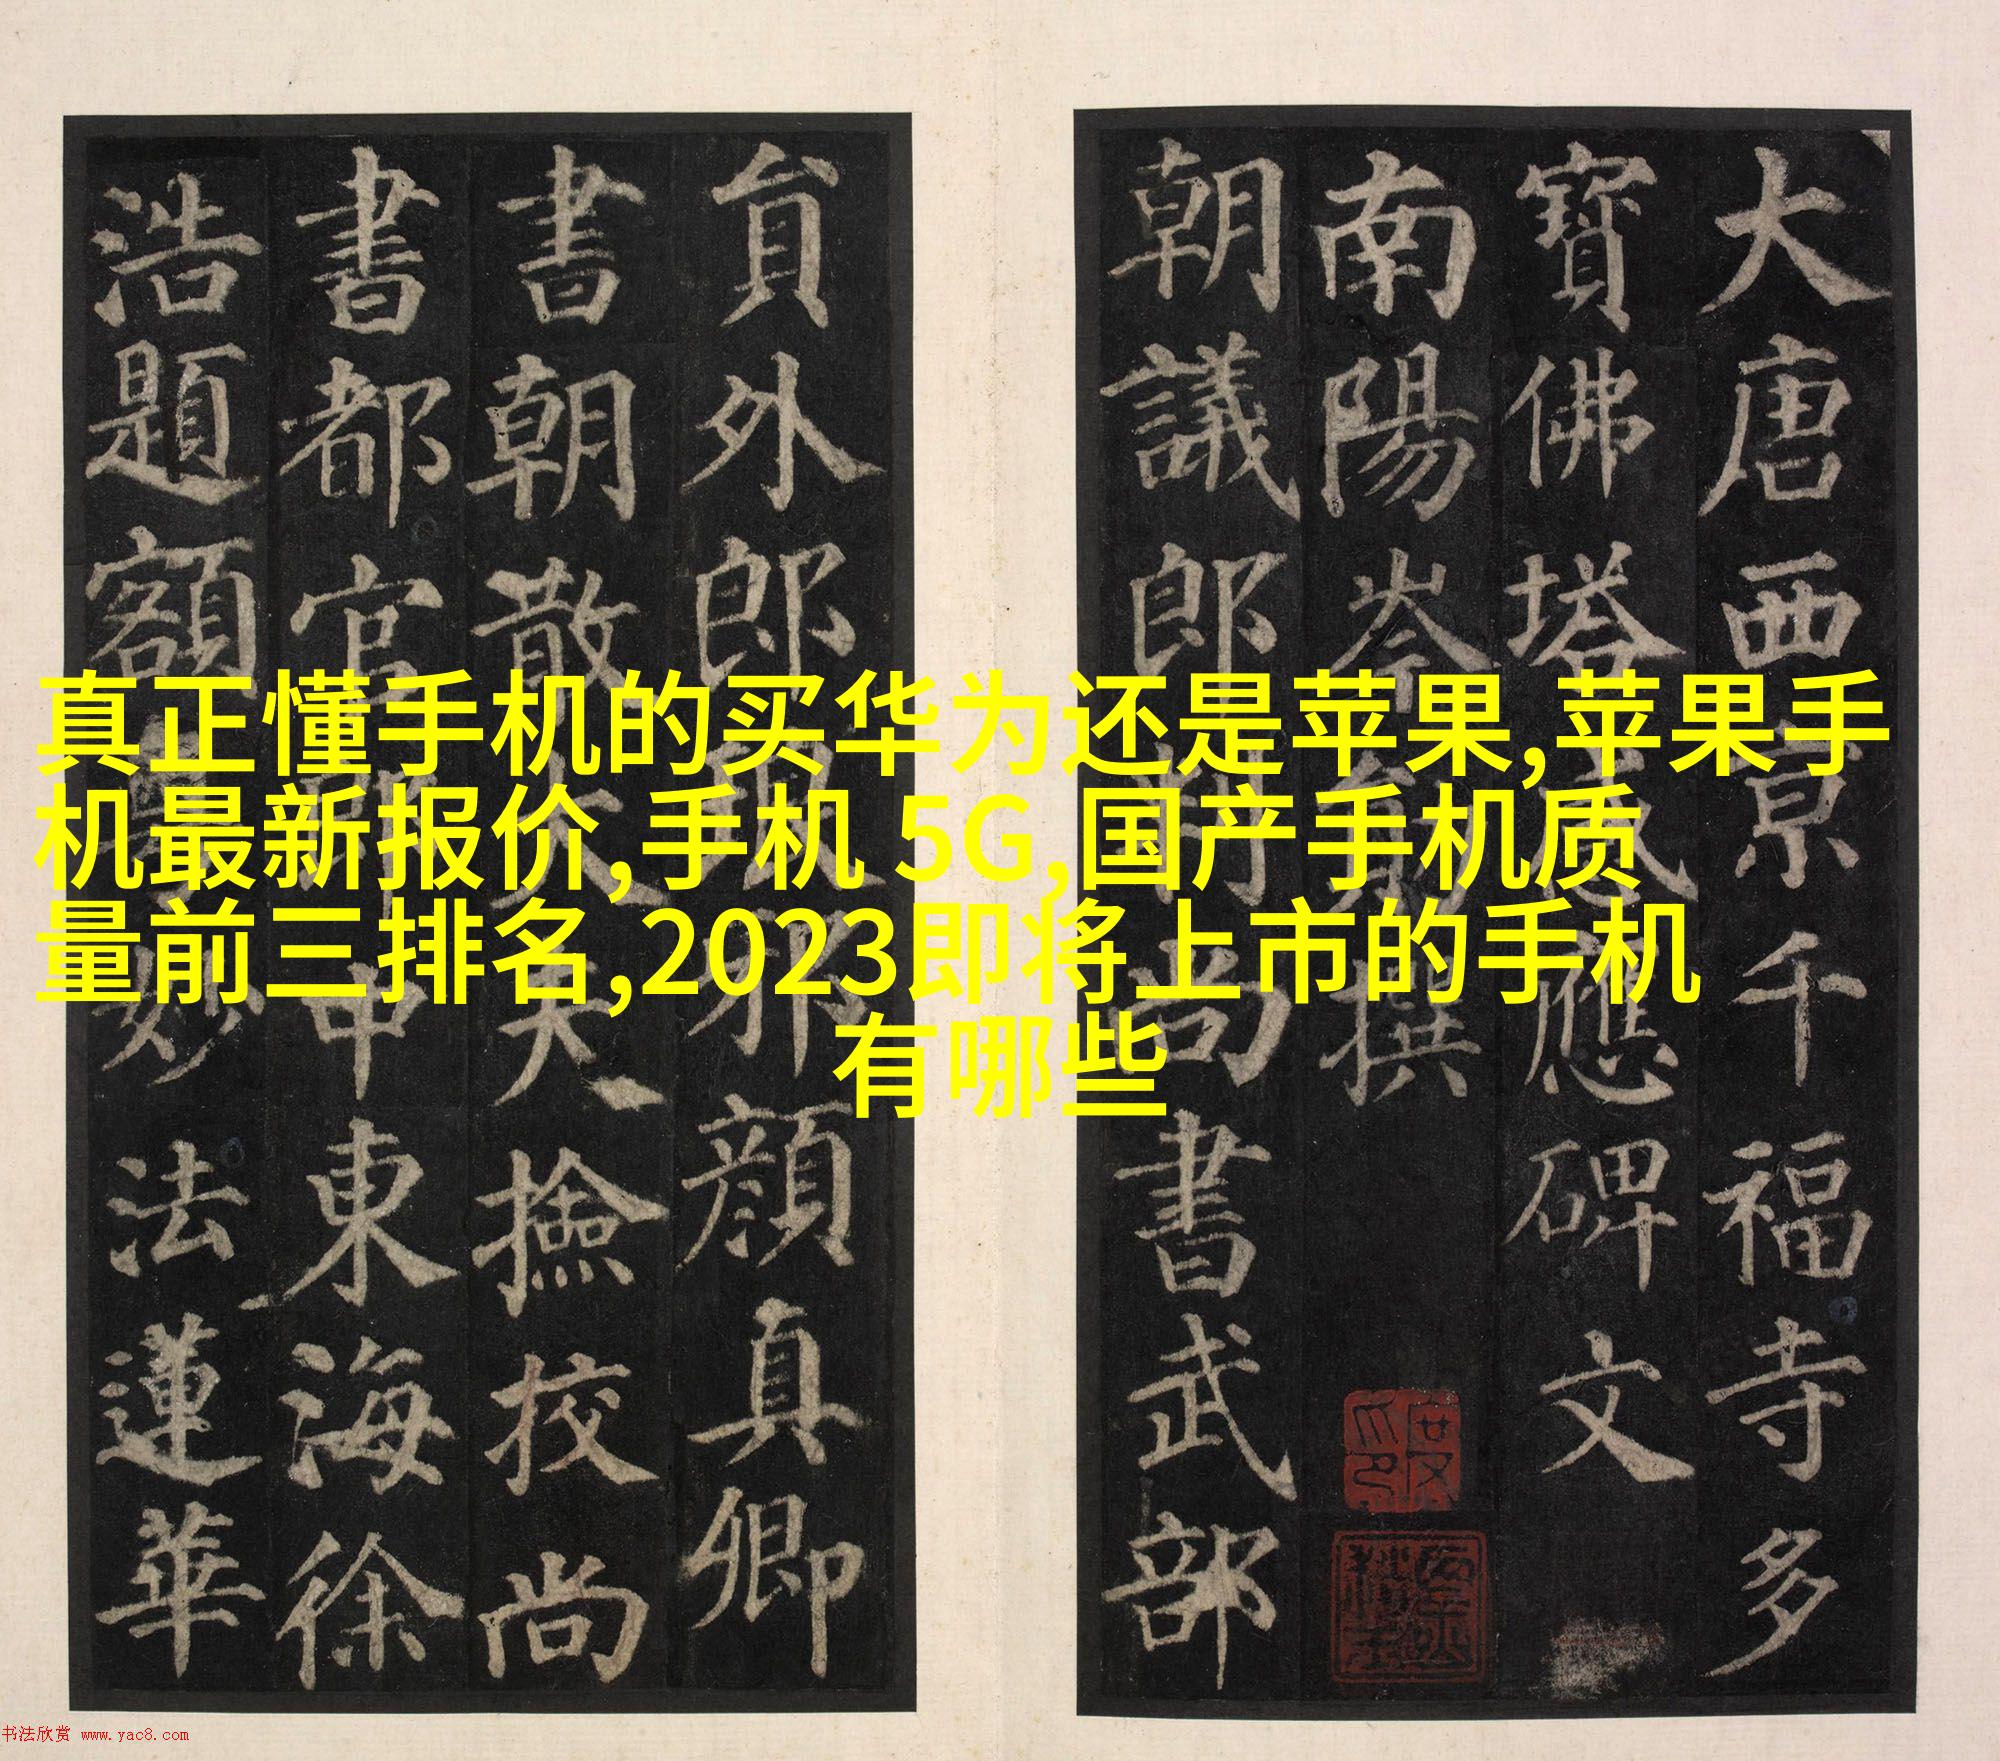 真正懂手机的买华为还是苹果,苹果手
机最新报价,手机 5G,国产手机质
量前三排名,2023即将上市的手机
有哪些
大唐西京千福寺多
寶佛塔感應碑文
南陽岑勛撰
朝議郎判尚書武部
貟外郎琅邪顏真卿
書朝散大夫撿校尚
書都官郎中東海徐
浩題額
法蓮華
书法欣赏 www.yac8.com